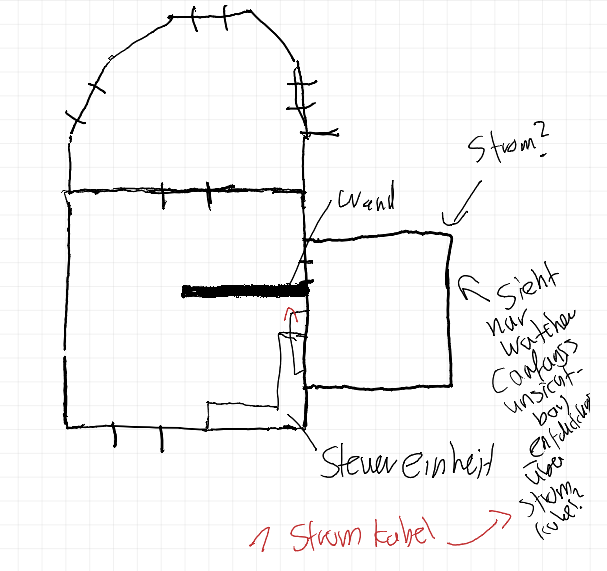 Strom?
Wand
Sieht
nur
Watcher
(anfangs
unsicht-
bar
entdecken
über
Strom
kabel?
Steuereinheit
1 Strom kabel